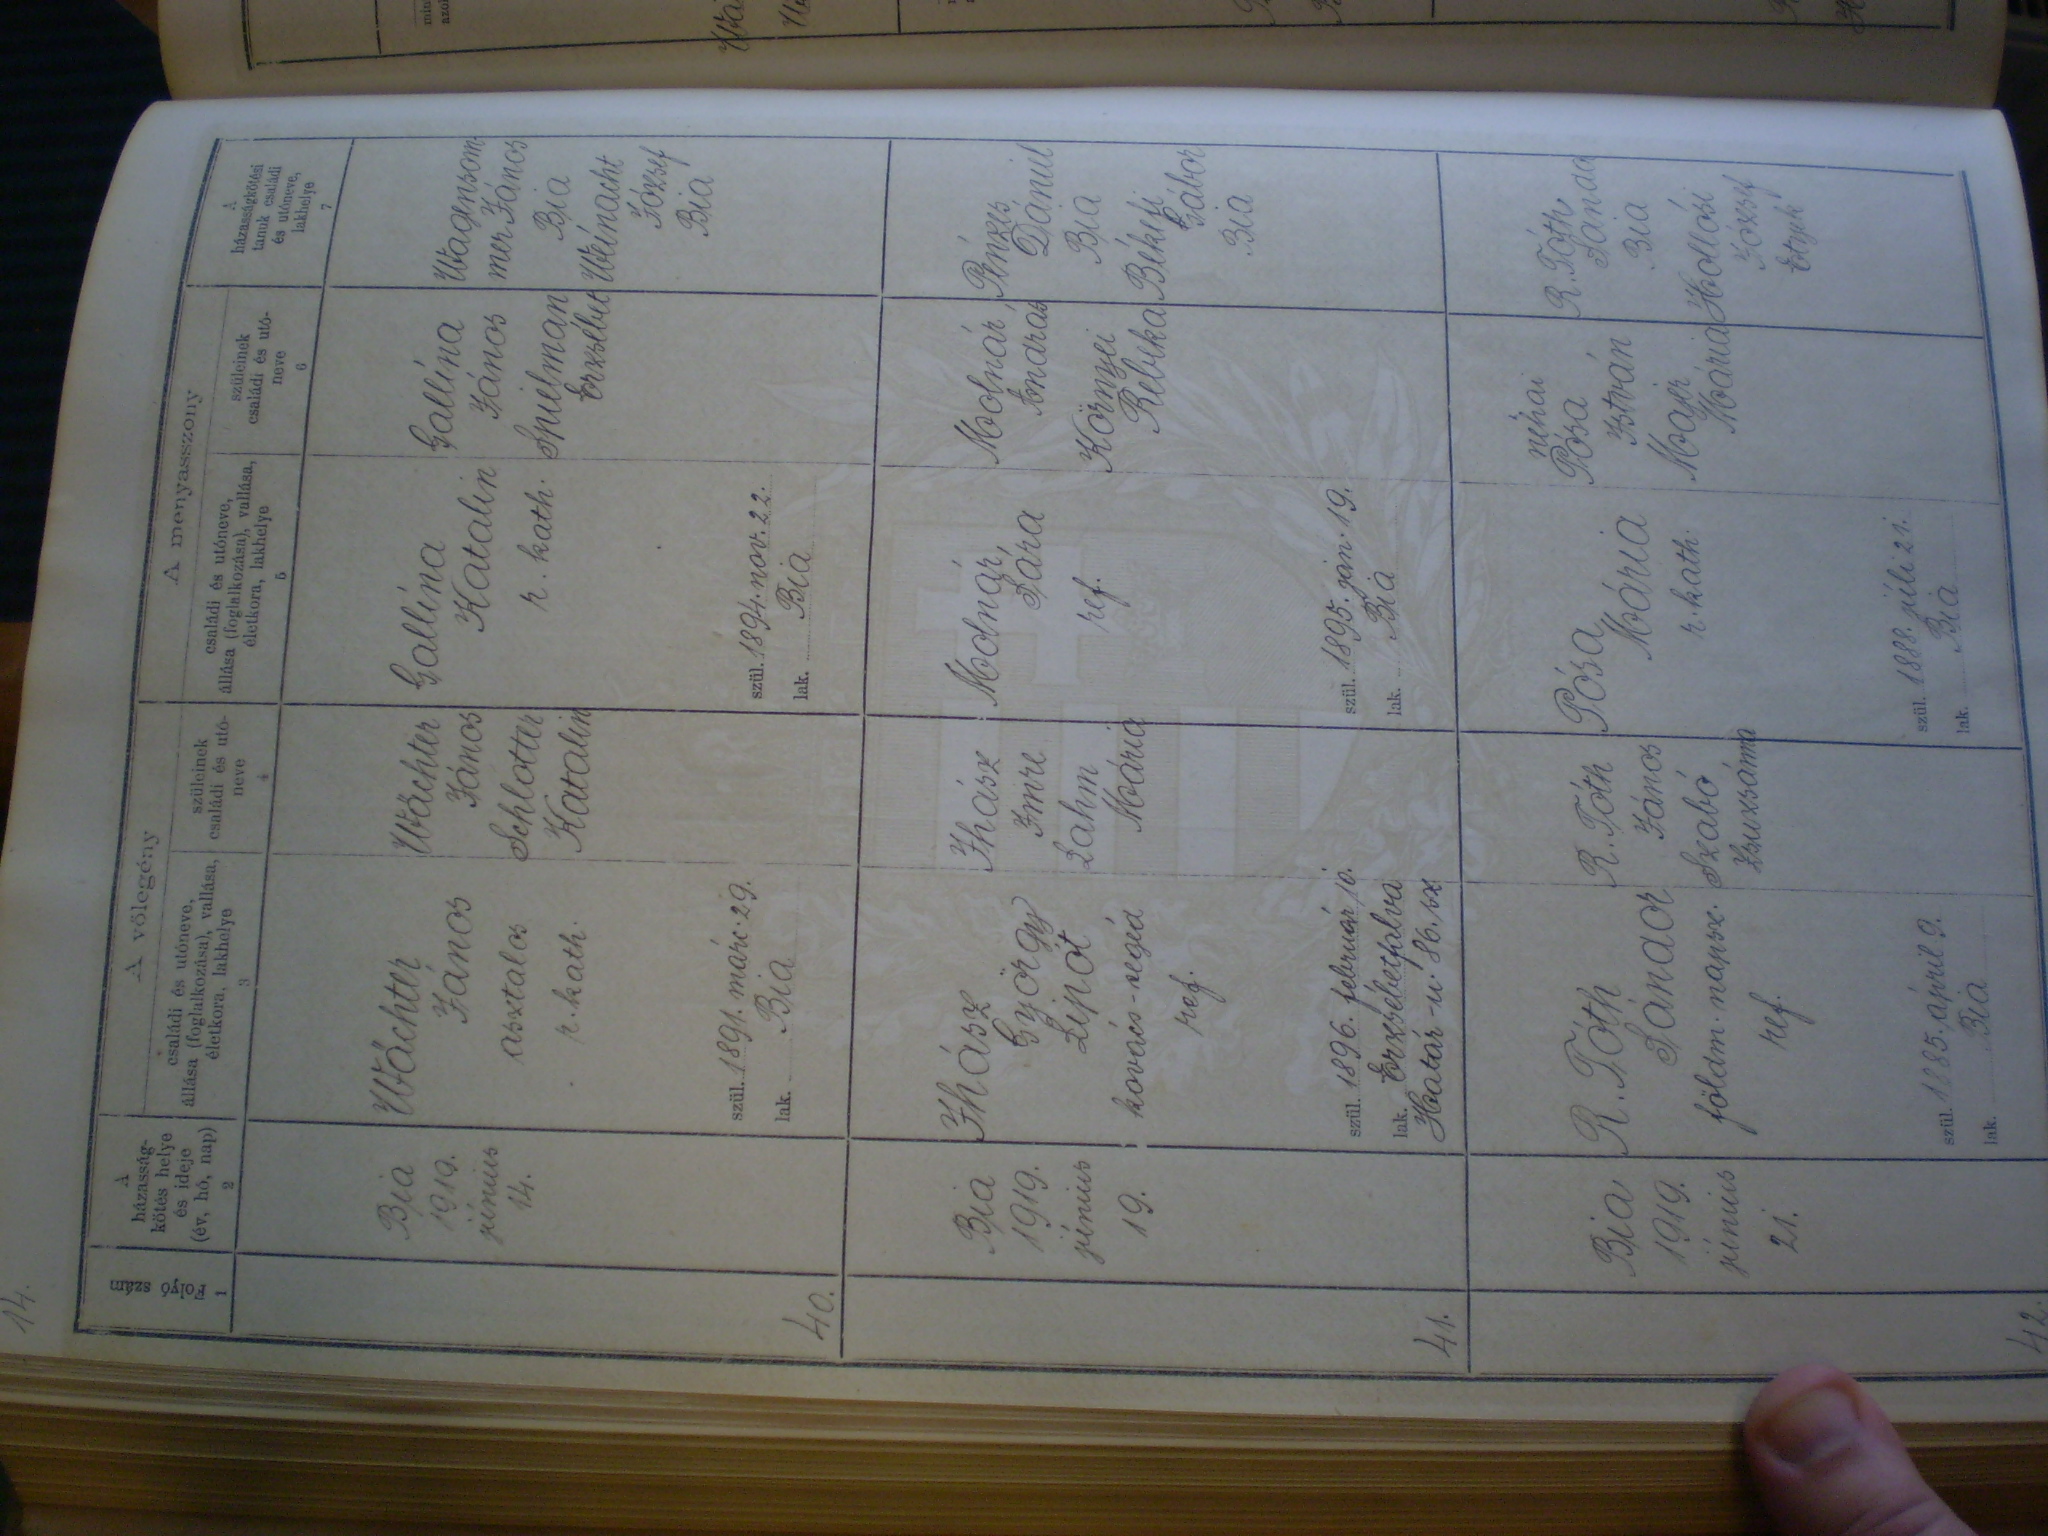 14.
Folyó szám
1
A
házasság-
kötés helye
és ideje
(év, hó, nap)
2
A vőlegény
családi és utóneve,
állása (foglalkozása), vallása,
életkora, lakhelye
3
szüleinek
családi és utó-
neve
4
A menyasszony
családi és utóneve,
állása (foglalkozása), vallása,
életkora, lakhelye
5
szüleinek
családi és utó-
neve
6
A
házasságkötési
tanuk családi
és utóneve,
lakhelye
7
40.
Bia
1919.
június
14.
Wächter
János
asztalos
r. kath.
szül. 1891. márc. 29.
lak. Bia
Wächter
János
Schlotter
Katalin
Gallina
Katalin
r. kath.
szül. 1894. nov. 22.
lak. Bia
Gallina
János
Spielman
Erzsébet
Wagensom
mer János
Bia
Weinacht
József
Bia
41.
Bia
1919.
június
19.
Ihász
György
Lipót
kovács-segéd
ref.
szül. 1896. február 10.
lak. Erzsébetfalva
Határ-u. 86. sz
Ihász
Imre
Lahm
Mária
Molnár
Sára
ref.
szül. 1895. jan. 19.
lak. Bia
Molnár
András
Környei
Rebeka
Pénzes
Dániel
Bia
Békefi
Gábor
Bia
42.
Bia
1919.
június
21.
R. Tóth
Sándor
földm. napsz.
ref.
szül. 1885. április 9.
lak. Bia
R. Tóth
János
Szabó
Zsuzsánna
Pósa
Mária
r. kath.
szül. 1888. júli 21.
lak. Bia
néhai
Pósa
István
Majer
Mária
R. Tóth
Sándor
Bia
Hollósi
József
Etyek